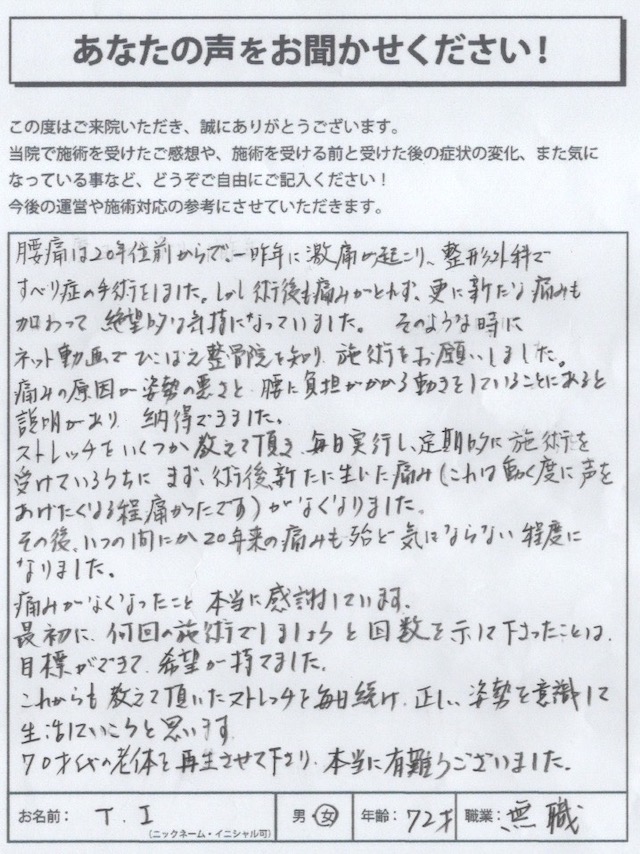 あなたの声をお聞かせください!
この度はご来院いただき、誠にありがとうございます。
当院で施術を受けたご感想や、施術を受ける前と受けた後の症状の変化、また気に
なっている事など、どうぞご自由にご記入ください!
今後の運営や施術対応の参考にさせていただきます。
腰痛は20年位前からで、一昨年に激痛が起こり、整形外科で
すべり症の手術をしました。しかし術後も痛みがとれず、更に新たな痛みも
加わって 絶望的な気持になっていました。 そのような時に
ネット動画でひこばえ整骨院を知り、施術をお願いしました。
痛みの原因が姿勢の悪さと、腰に負担がかかる動きをしていることにあると
説明があり 納得できました。
ストレッチをいくつか教えて頂き、毎日実行し、定期的に施術を
受けているうちに まず、術後、新たに生じた痛み(これは動く度に声を
あげたくなる程痛かったです)がなくなりました。
その後、いつの間にか20年来の痛みも殆ど気にならない程度に
なりました。
痛みがなくなったこと 本当に感謝しています。
最初に、何回の施術でしましょうと回数を示して下さったことは、
目標ができて、希望が持てました。
これからも教えて頂いたストレッチを毎日続け、正しい姿勢を意識して
生活していこうと思います。
70才代の老体を再生させて下さり、本当に有難うございました。
お名前: T.I (ニックネーム・イニシャル可) 男・女 年齢: 72才 職業: 無職